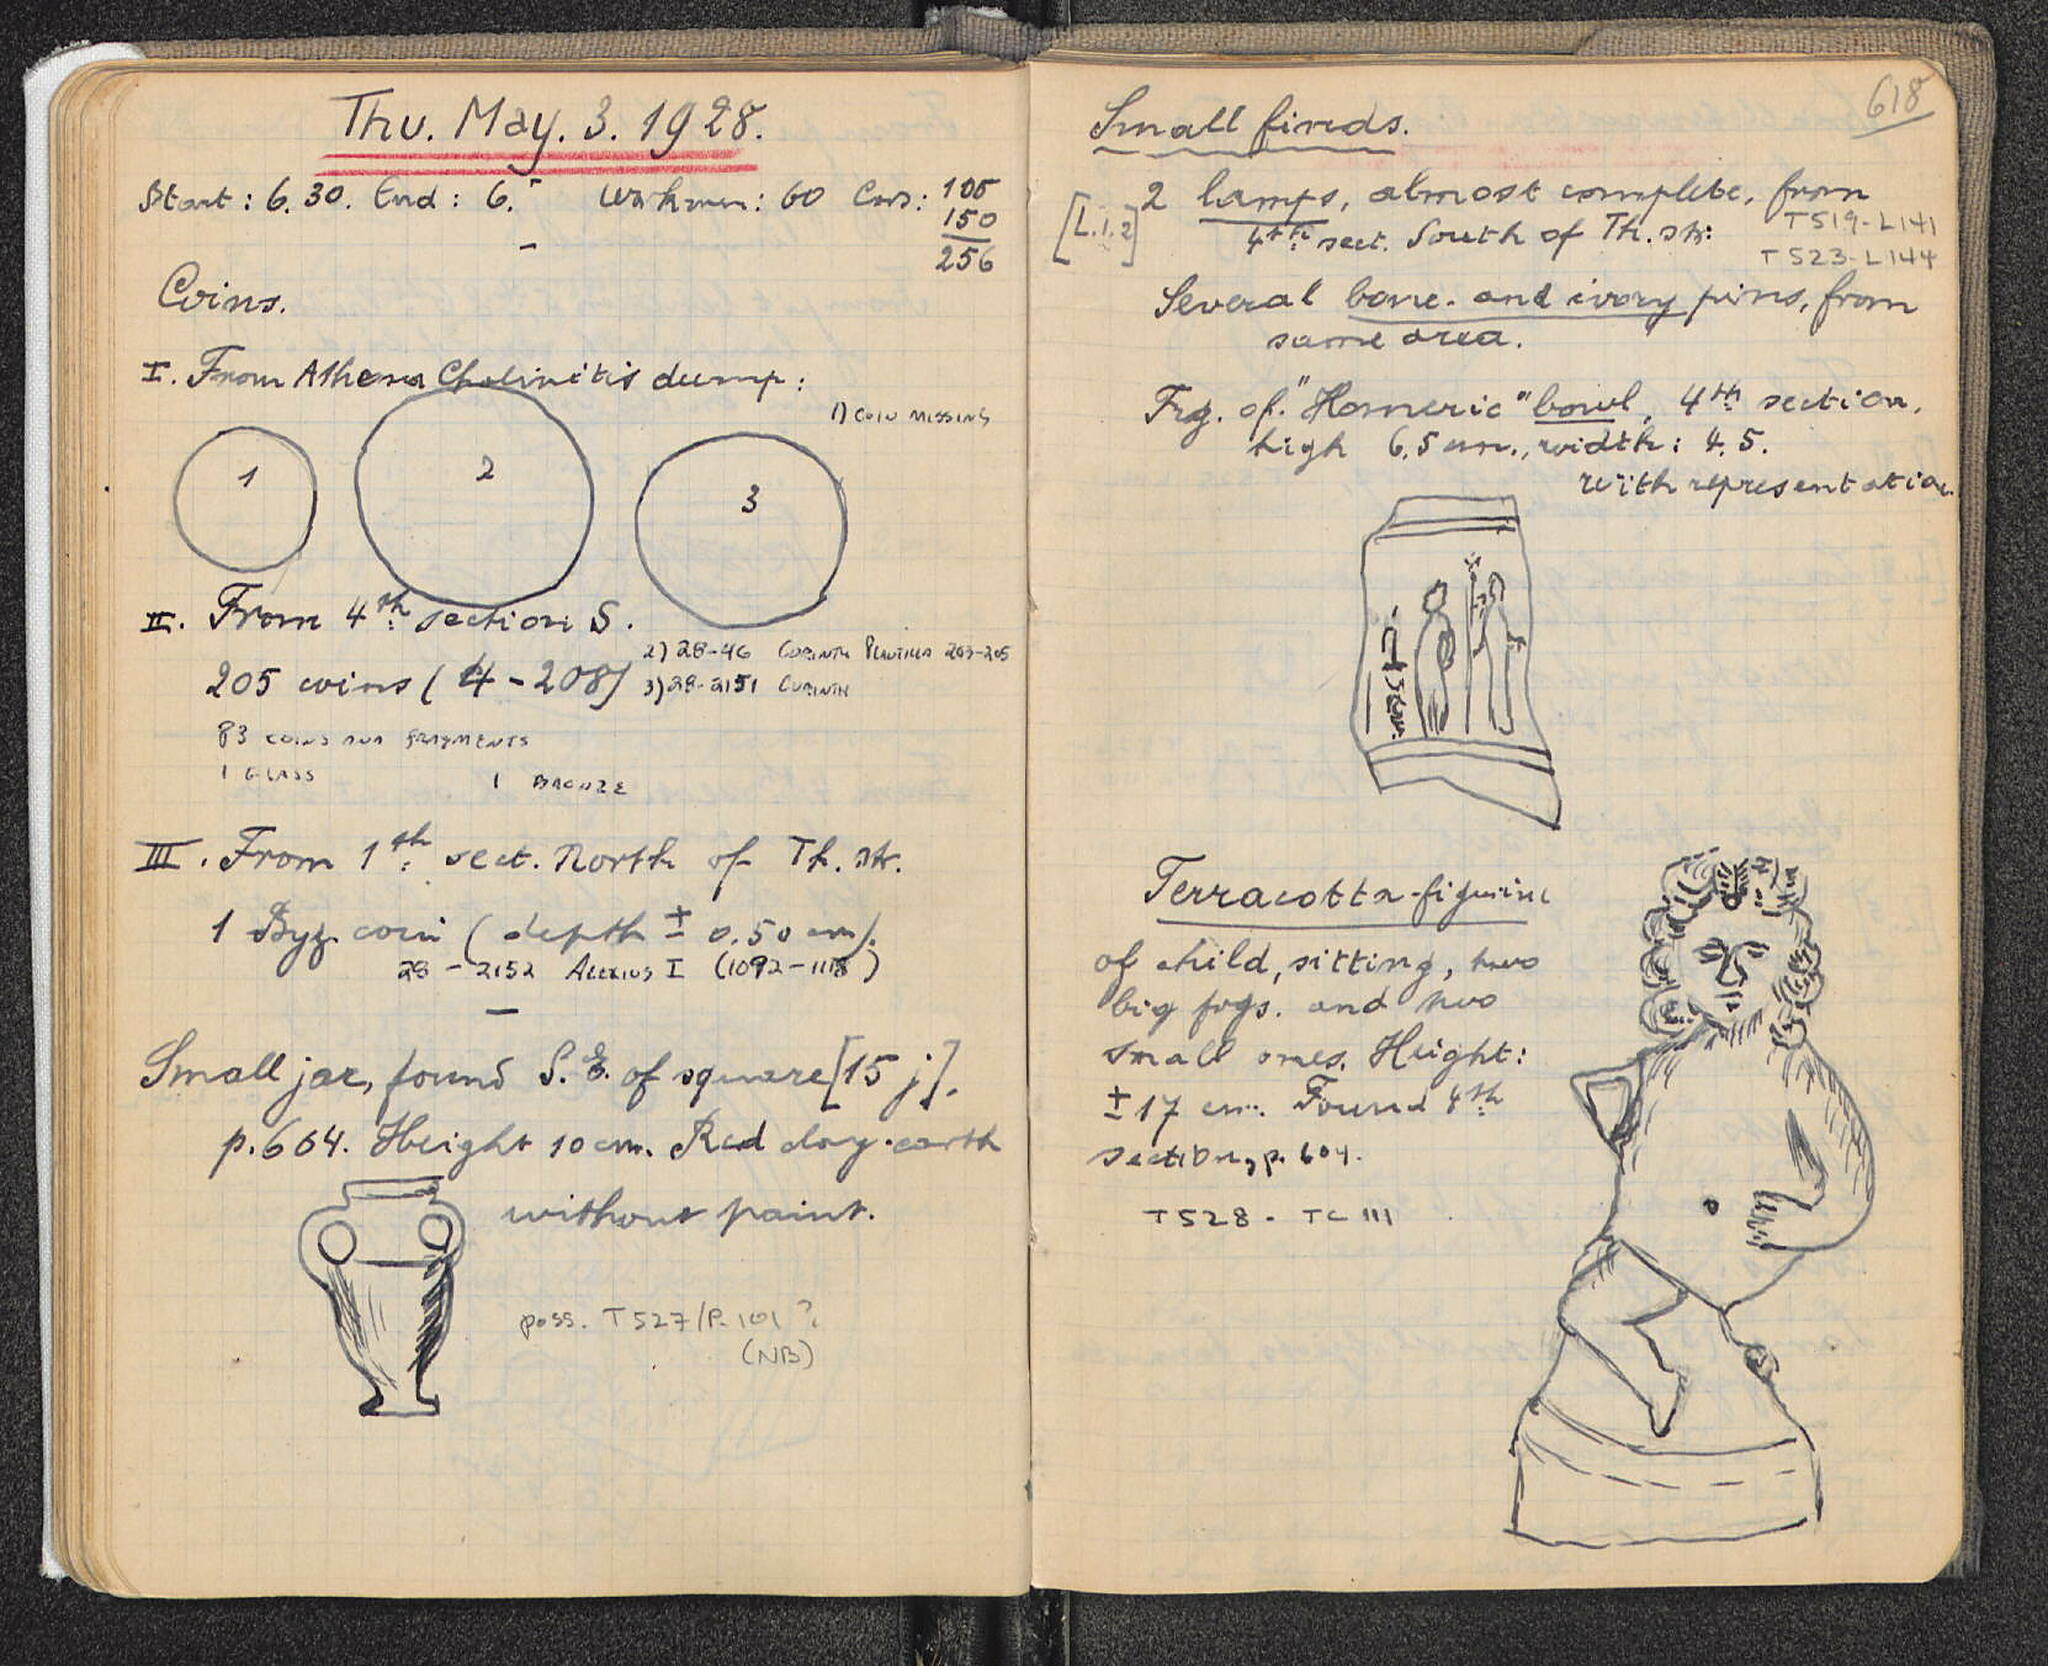 Thu. May. 3. 1928.
Start: 6.30. End: 6. Workmen: 60 Cars: 106
150
256
Coins.
I. From Athena Chalinitis dump:
1) COIN MISSING
1
2
3
II. From 4th section S.
2) 28-46 CORINTH PLAUTILLA 203-205
205 coins (4-208)
3) 28-2151 CORINTH
83 COINS AND FRAGMENTS
1 GLASS 1 BRONZE
III. From 1th sect. North of Th. str.
1 Byz. coin (depth ± 0.50 cm).
28-2152 ALEXIUS I (1092-1118)
Small jar, found S.E. of square [15 j].
p. 604. Height 10 cm. Red clay-earth
without paint.
poss. T527/P. 101?
(NB)
618
Small finds.
[L.1.2] 2 lamps, almost complete, from
4th sect. South of Th. str:
T519-L141
T523-L144
Several bone- and ivory pins, from
same area.
Frg. of "Homeric" bowl, 4th section,
high 6,5 cm., width: 4.5.
with representation.
Terracotta-figurine
of child, sitting, two
big fogs. and two
small ones. Height:
± 17 cm. Found 4th
section, p. 604.
T528 - TC 111